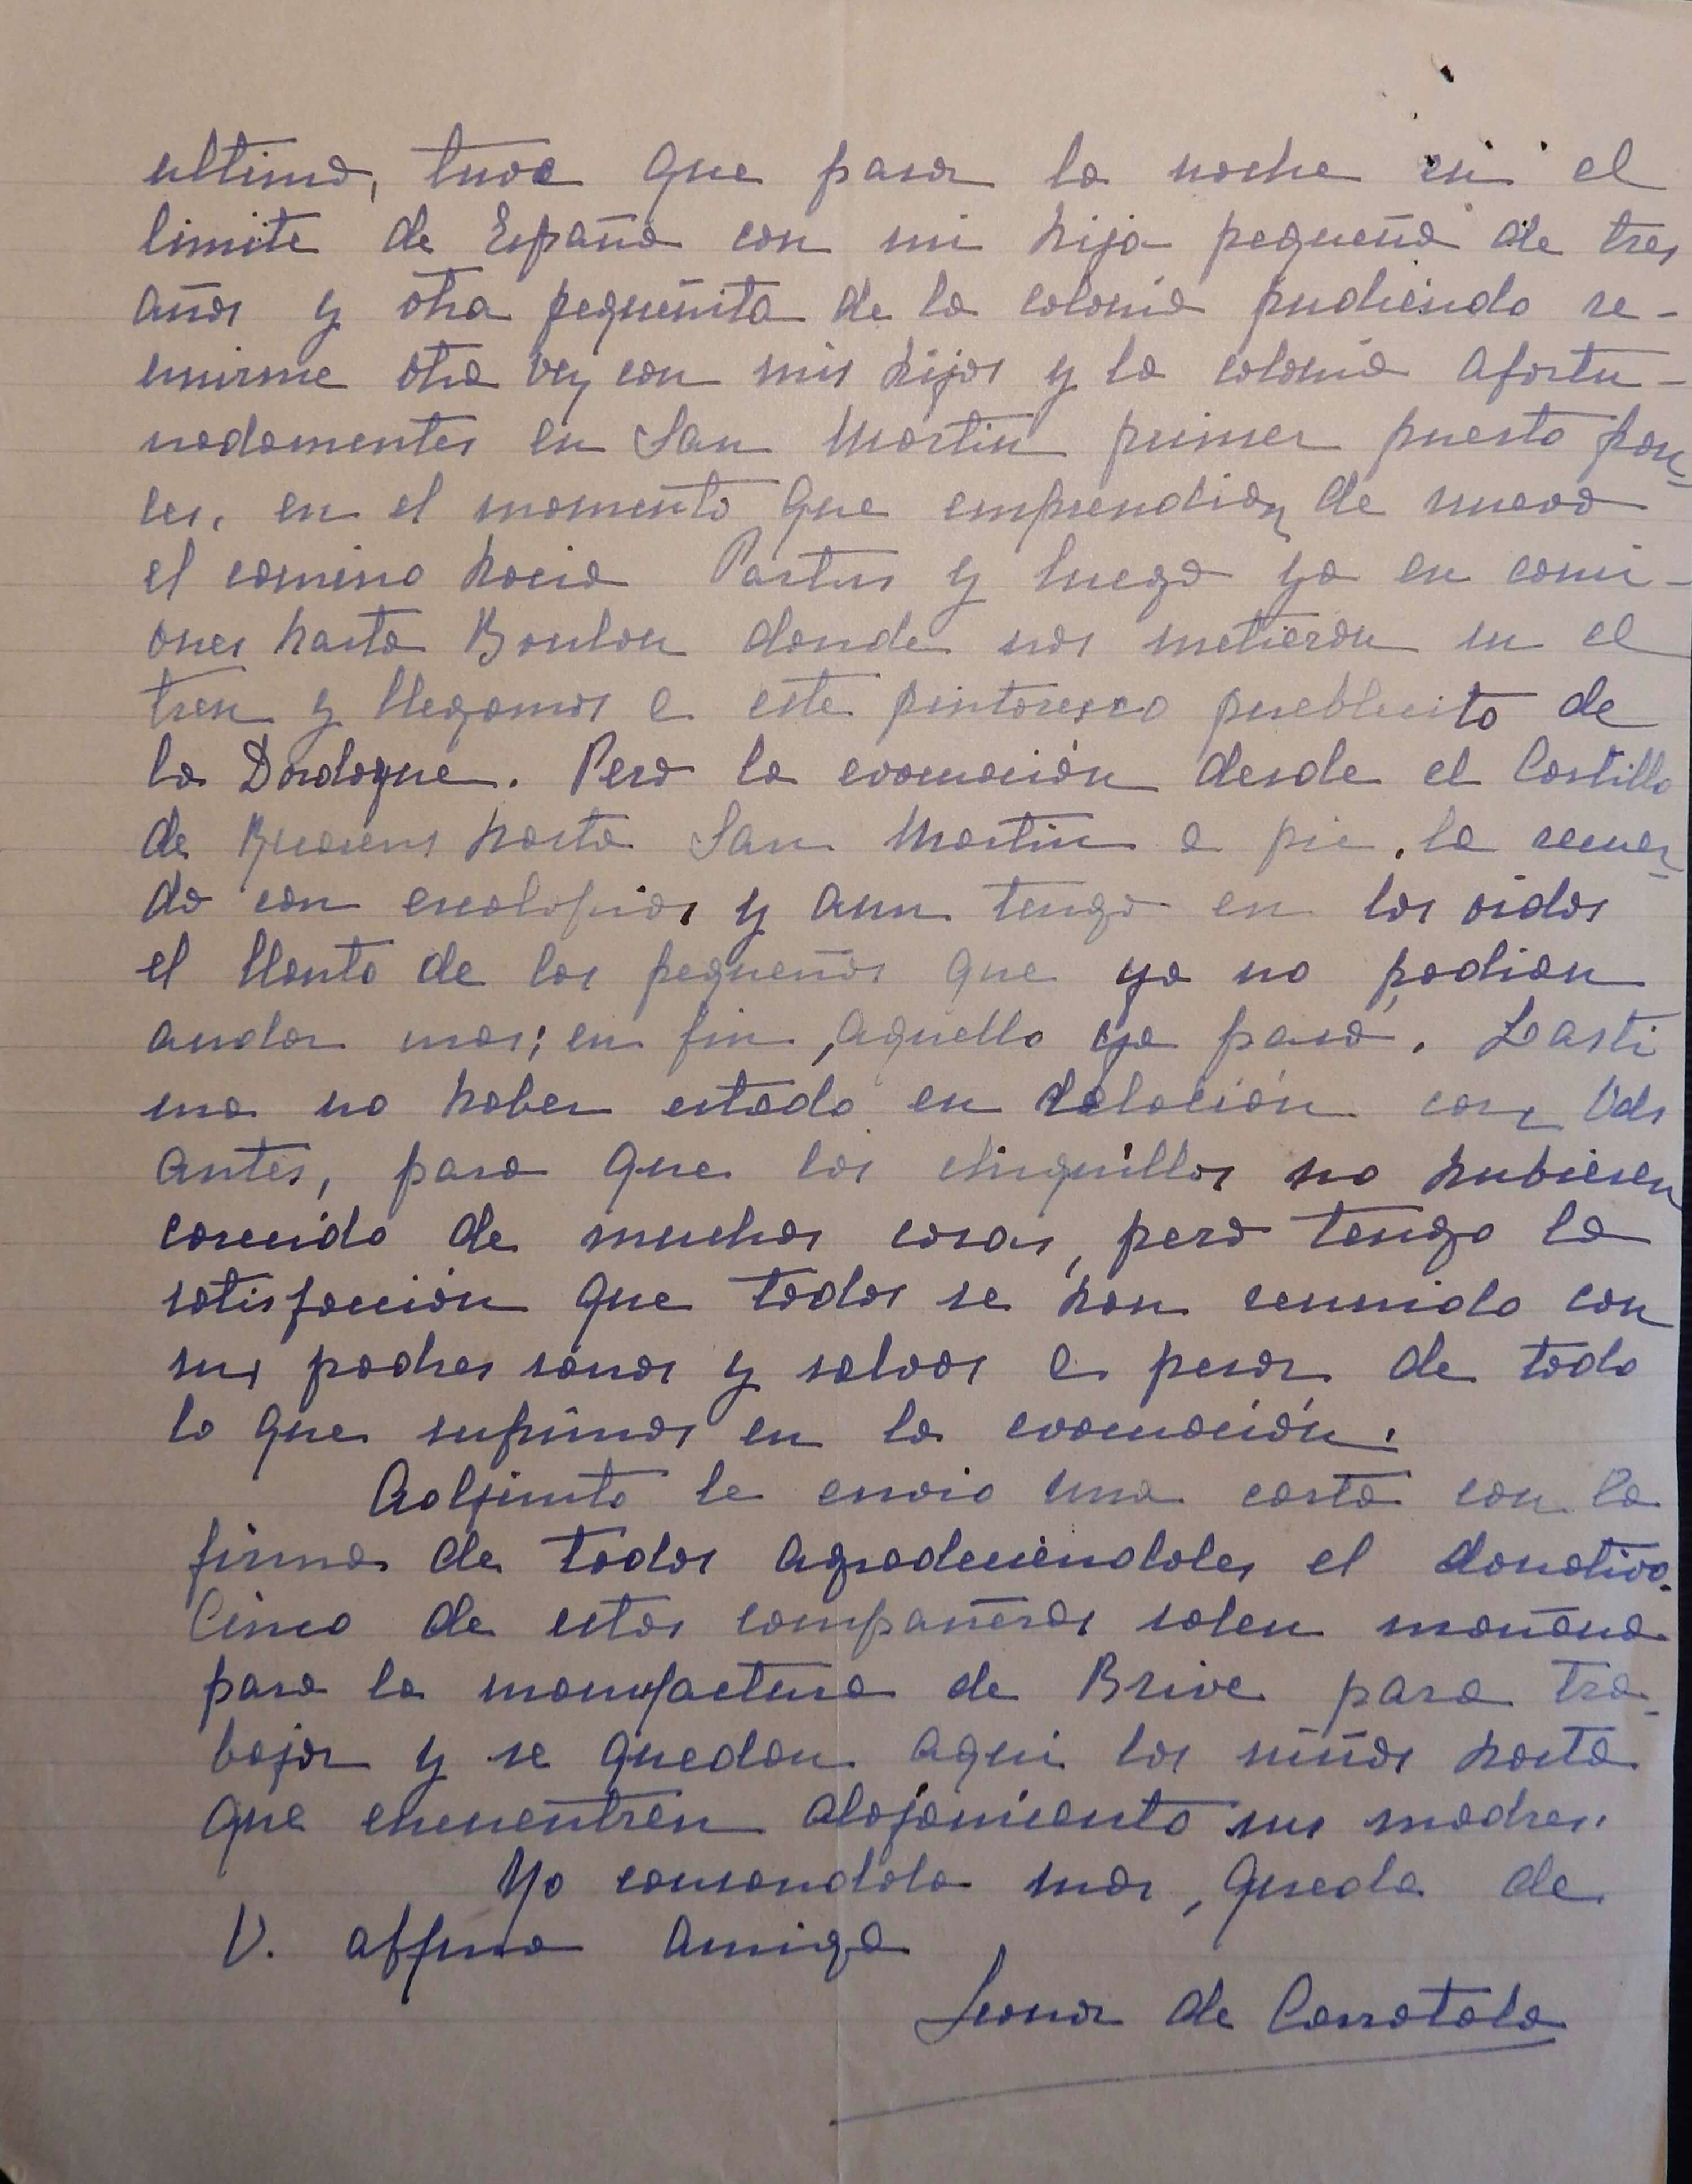 ultimo, tuve que pasar la noche en el
limite de España con mi hija pequeña de tres
años y otra pequeñita de la colonia pudiendo re-
unirme otra vez con mis hijos y la colonia afortu-
nadamentes en San Martin primer puesto fran-
ces, en el momento que emprendian de nuevo
el camino hacia Partus y luego ya en cami-
ones hasta Boulon donde nos metieron en el
tren y llegamos a este pintoresco pueblecito de
la Dordogne. Pero la evacuación desde el Castillo
de hasta San Martin a pie, la recuer-
do con escalofrios y aun tengo en los oidos
el llanto de los pequeños que ya no podian
andar mas; en fin, aquello ya pasó. Lasti
ma no haber estado en relación con Vds
antes, para que los chiquillos no hubiesen
carecido de muchas cosas, pero tengo la
satisfacción que todos se han reunido con
sus padres sanos y salvos a pesar de todo
lo que sufrimos en la evacuación.
Adjunto le envio una carta con la
firma de todos agradeciendoles el donativo.
Cinco de estas compañeras salen mañana
para la manufactura de Brive para tra-
bajar y se quedan aqui los niños hasta
que encuentren alojamiento sus madres.
No cansandola mas, queda de
V. affma amiga
Leonor de Carratala